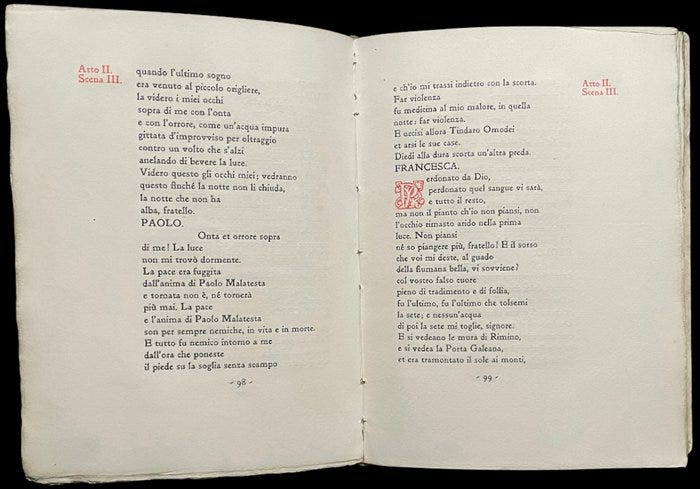 Atto II.
Scena III.
quando l'ultimo sogno
era venuto al piccolo origliere,
la videro i miei occhi
sopra di me con l'onta
e con l'orrore, come un'acqua impura
gittata d'improvviso per oltraggio
contro un volto che s'alzi
anelando di bevere la luce.
Videro questo gli occhi miei; vedranno
questo finché la notte non li chiuda,
la notte che non ha
alba, fratello.
PAOLO.
Onta et orrore sopra
di me! La luce
non mi trovò dormente.
La pace era fuggita
dall'anima di Paolo Malatesta
e tornata non è, né tornerà
più mai. La pace
e l'anima di Paolo Malatesta
son per sempre nemiche, in vita e in morte.
E tutto fu nemico intorno a me
dall'ora che poneste
il piede su la soglia senza scampo
- 98 -
Atto II.
Scena III.
e ch'io mi trassi indietro con la scorta.
Far violenza
fu medicina al mio malore, in quella
notte: far violenza.
E uccisi allora Tindaro Omodei
et arsi le sue case.
Diedi alla dura scorta un'altra preda.
FRANCESCA.
Perdonato da Dio,
perdonato quel sangue vi sarà,
e tutto il resto,
ma non il pianto ch'io non piansi, non
l'occhio rimasto arido nella prima
luce. Non piansi
né so piangere più, fratello! E il sorso
che voi mi deste, al guado
della fiumana bella, vi sovviene?
col vostro falso cuore
pieno di tradimento e di follìa,
fu l'ultimo, fu l'ultimo che tolsemi
la sete; e nessun'acqua
di poi la sete mi toglie, signore.
E si vedeano le mura di Rimino,
e si vedea la Porta Galeana,
et era tramontato il sole ai monti,
- 99 -